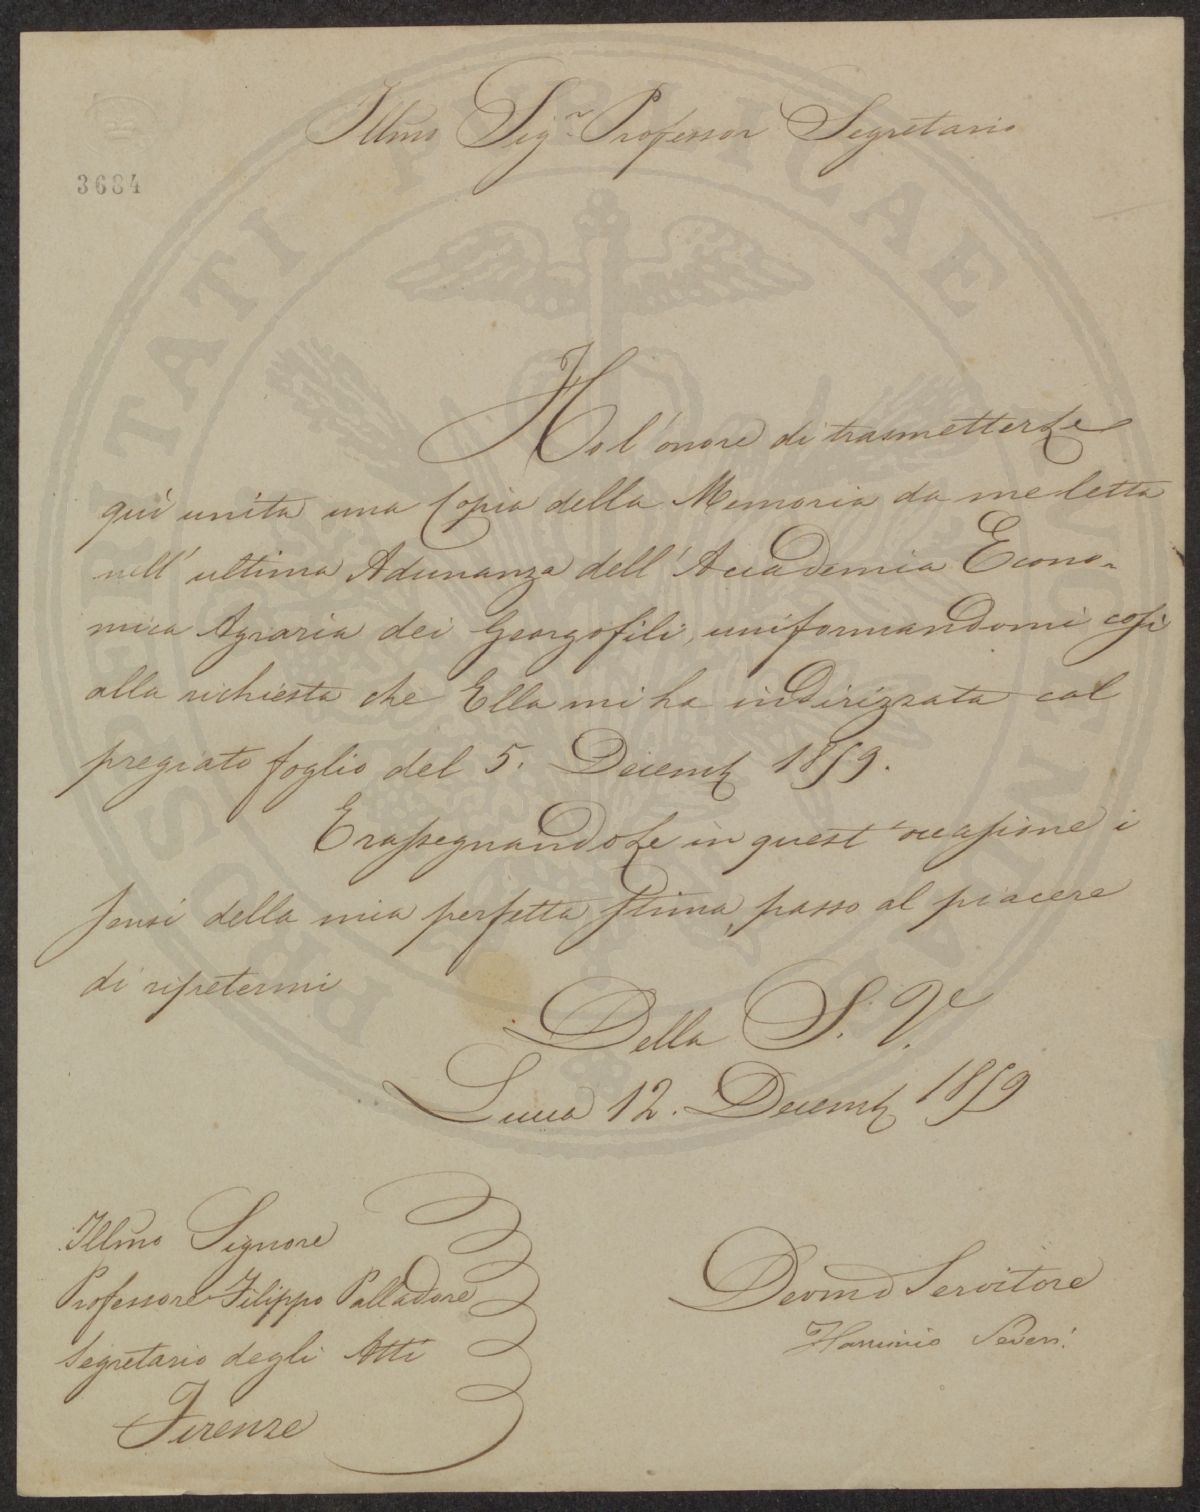 Illmo Sigr Professor Segretario
3684
Ho l'onore di trasmetterLe
qui unita una Copia della Memoria da me letta
nell'ultima Adunanza dell'Accademia Econo-
mica Agraria dei Georgofili, uniformandomi così
alla richiesta che Ella mi ha indirizzata col
pregiato foglio del 5. Decemb 1859.
E rassegnandoLe in quest'occasione i
sensi della mia perfetta stima, passo al piacere
di ripetermi
Della S. V.
Lucca 12. Decemb 1859
Illmo Signore
Professore Filippo Palladore
Segretario degli Atti
Firenze
Devmo Servitore
PROSPERITATI PUBLICAE AUGENDAE